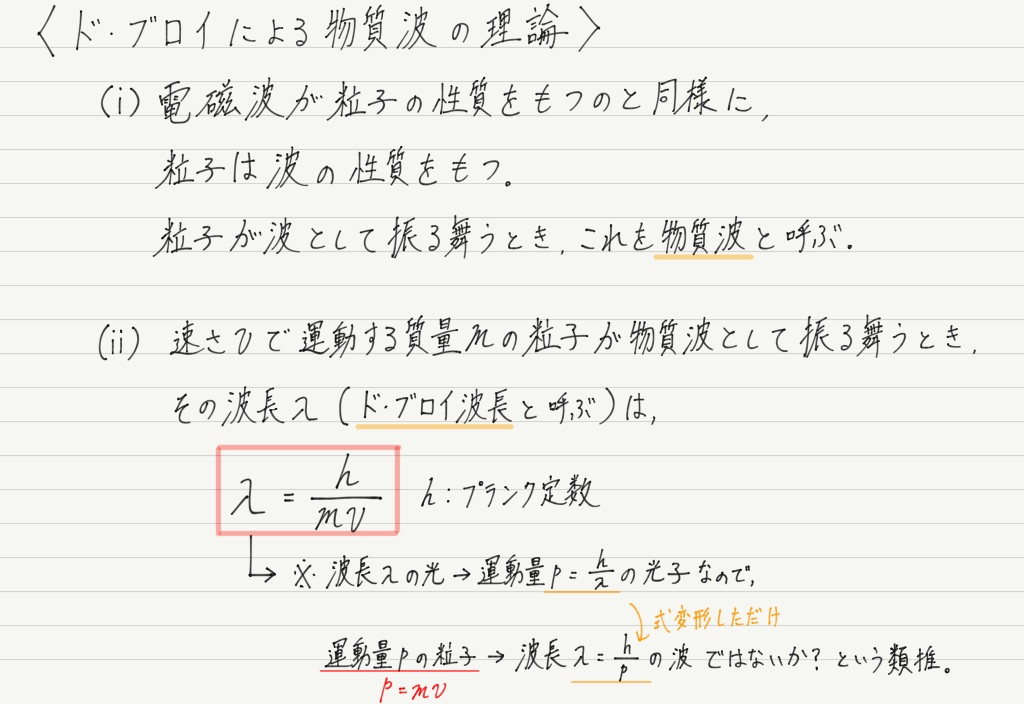 〈ド・ブロイによる物質波の理論〉
(i) 電磁波が粒子の性質をもつのと同様に,
粒子は波の性質をもつ。
粒子が波として振る舞うとき,これを物質波と呼ぶ.
(ii) 速さvで運動する質量mの粒子が物質波として振る舞うとき,
その波長λ(ド・ブロイ波長と呼ぶ)は,
λ = h/mv h:プランク定数
※ 波長λの光→運動量p=h/λの光子なので,
式変形しただけ
運動量pの粒子→波長λ=h/pの波ではないか?という類推。
p=mv